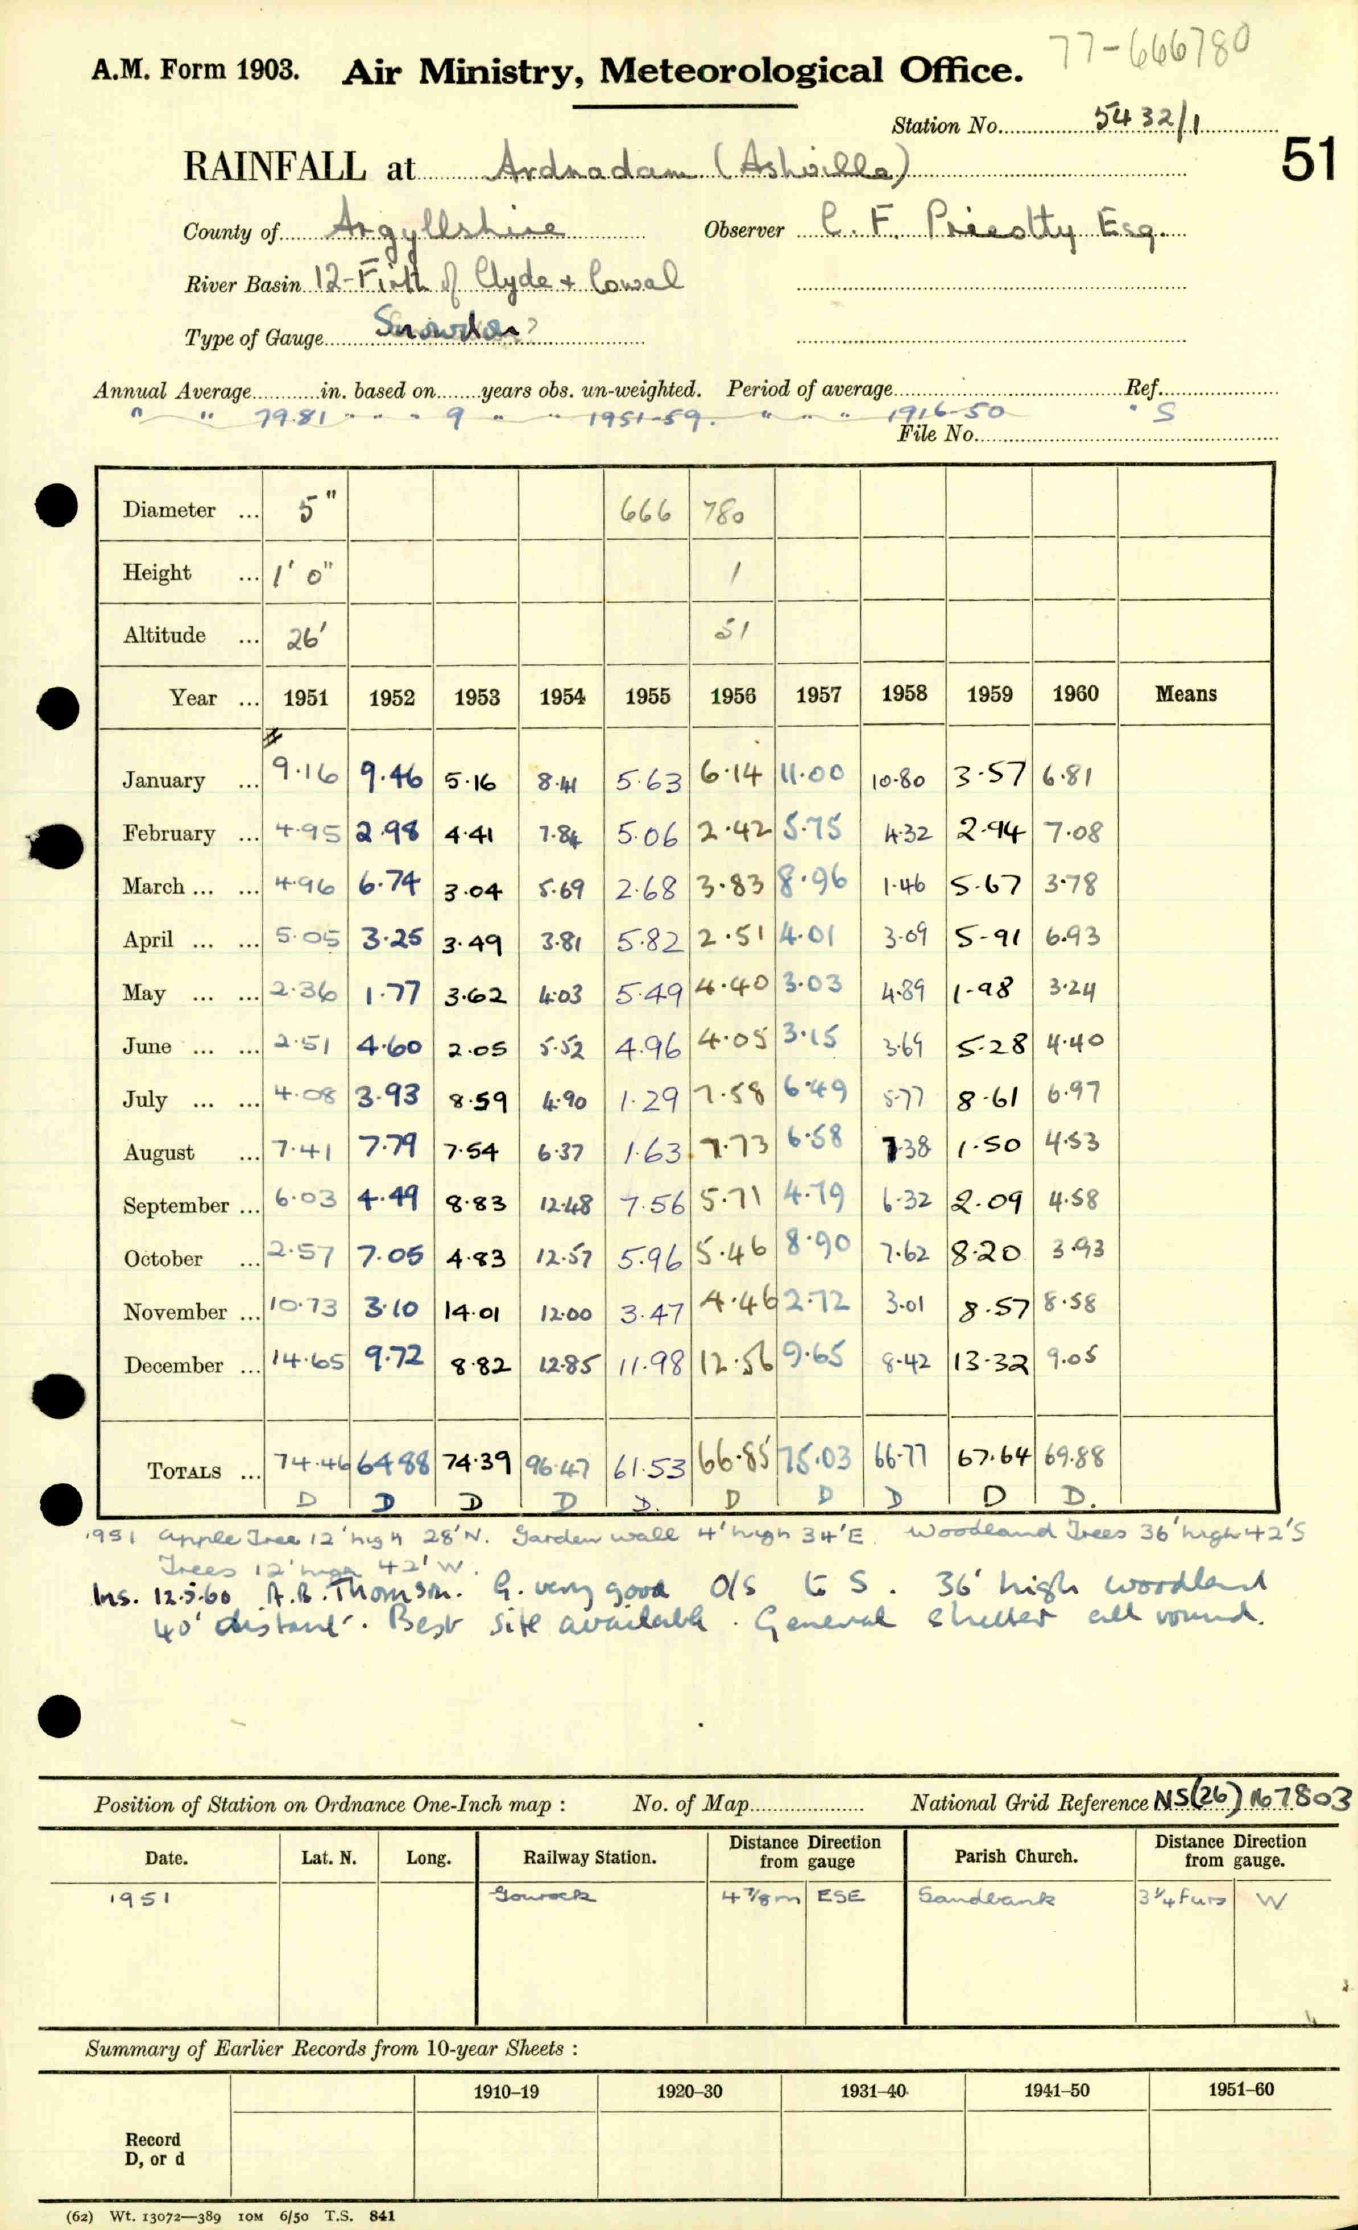 77-666780
A.M. Form 1903. Air Ministry, Meteorological Office.
Station No. 5432/1
51
RAINFALL at Ardnadam (Ashville)
County of Argyllshire Observer C. F. Priestty Esq.
River Basin 12-Firth of Clyde + Cowal
Type of Gauge Snowdon?
Annual Average in. based on years obs. un-weighted. Period of average Ref.
" " 79.81 " " " 9 " " 1951-59. " " " 1916-50 " S
File No.
Diameter ... 5" 666 780
Height ... 1' 0" 1
Altitude ... 26' 51
Year ... 1951 1952 1953 1954 1955 1956 1957 1958 1959 1960 Means
January ... 9.16 9.46 5.16 8.41 5.63 6.14 11.00 10.80 3.57 6.81
February ... 4.95 2.98 4.41 7.84 5.06 2.42 5.75 4.32 2.94 7.08
March ... ... 4.96 6.74 3.04 5.69 2.68 3.83 8.96 1.46 5.67 3.78
April ... ... 5.05 3.25 3.49 3.81 5.82 2.51 4.01 3.09 5.91 6.93
May ... ... 2.36 1.77 3.62 4.03 5.49 4.40 3.03 4.89 1.98 3.24
June ... ... 2.51 4.60 2.05 5.52 4.96 4.05 3.15 3.69 5.28 4.40
July ... ... 4.08 3.93 8.59 4.90 1.29 7.58 6.49 5.77 8.61 6.97
August ... 7.41 7.79 7.54 6.37 1.63 7.73 6.58 7.38 1.50 4.53
September ... 6.03 4.49 8.83 12.48 7.56 5.71 4.79 6.32 2.09 4.58
October ... 2.57 7.05 4.83 12.57 5.96 5.46 8.90 7.62 8.20 3.93
November ... 10.73 3.10 14.01 12.00 3.47 4.46 2.72 3.01 8.57 8.58
December ... 14.65 9.72 8.82 12.85 11.98 12.56 9.65 8.42 13.32 9.05
TOTALS ... 74.46 64.88 74.39 96.47 61.53 66.85 75.03 66.77 67.64 69.88
D D D D D. D D D D D.
1951 Apple Tree 12' high 28'N. Garden wall 4' high 34'E. Woodland Trees 36' high 42'S
Trees 12' high 42' W.
Ins. 12.5.60 A.B. Thomson. G. very good O/S to S. 36' high woodland
40' distant. Best site available. General shelter all round.
Position of Station on Ordnance One-Inch map : No. of Map National Grid Reference NS(26) 167803
Date. Lat. N. Long. Railway Station. Distance Direction from gauge Parish Church. Distance Direction from gauge.
1951 Gourock 4 7/8 m ESE Sandbank 3 1/4 furs W
Summary of Earlier Records from 10-year Sheets :
1910–19 1920–30 1931–40 1941–50 1951–60
Record
D, or d
(62) Wt. 13072—389 10M 6/50 T.S. 841